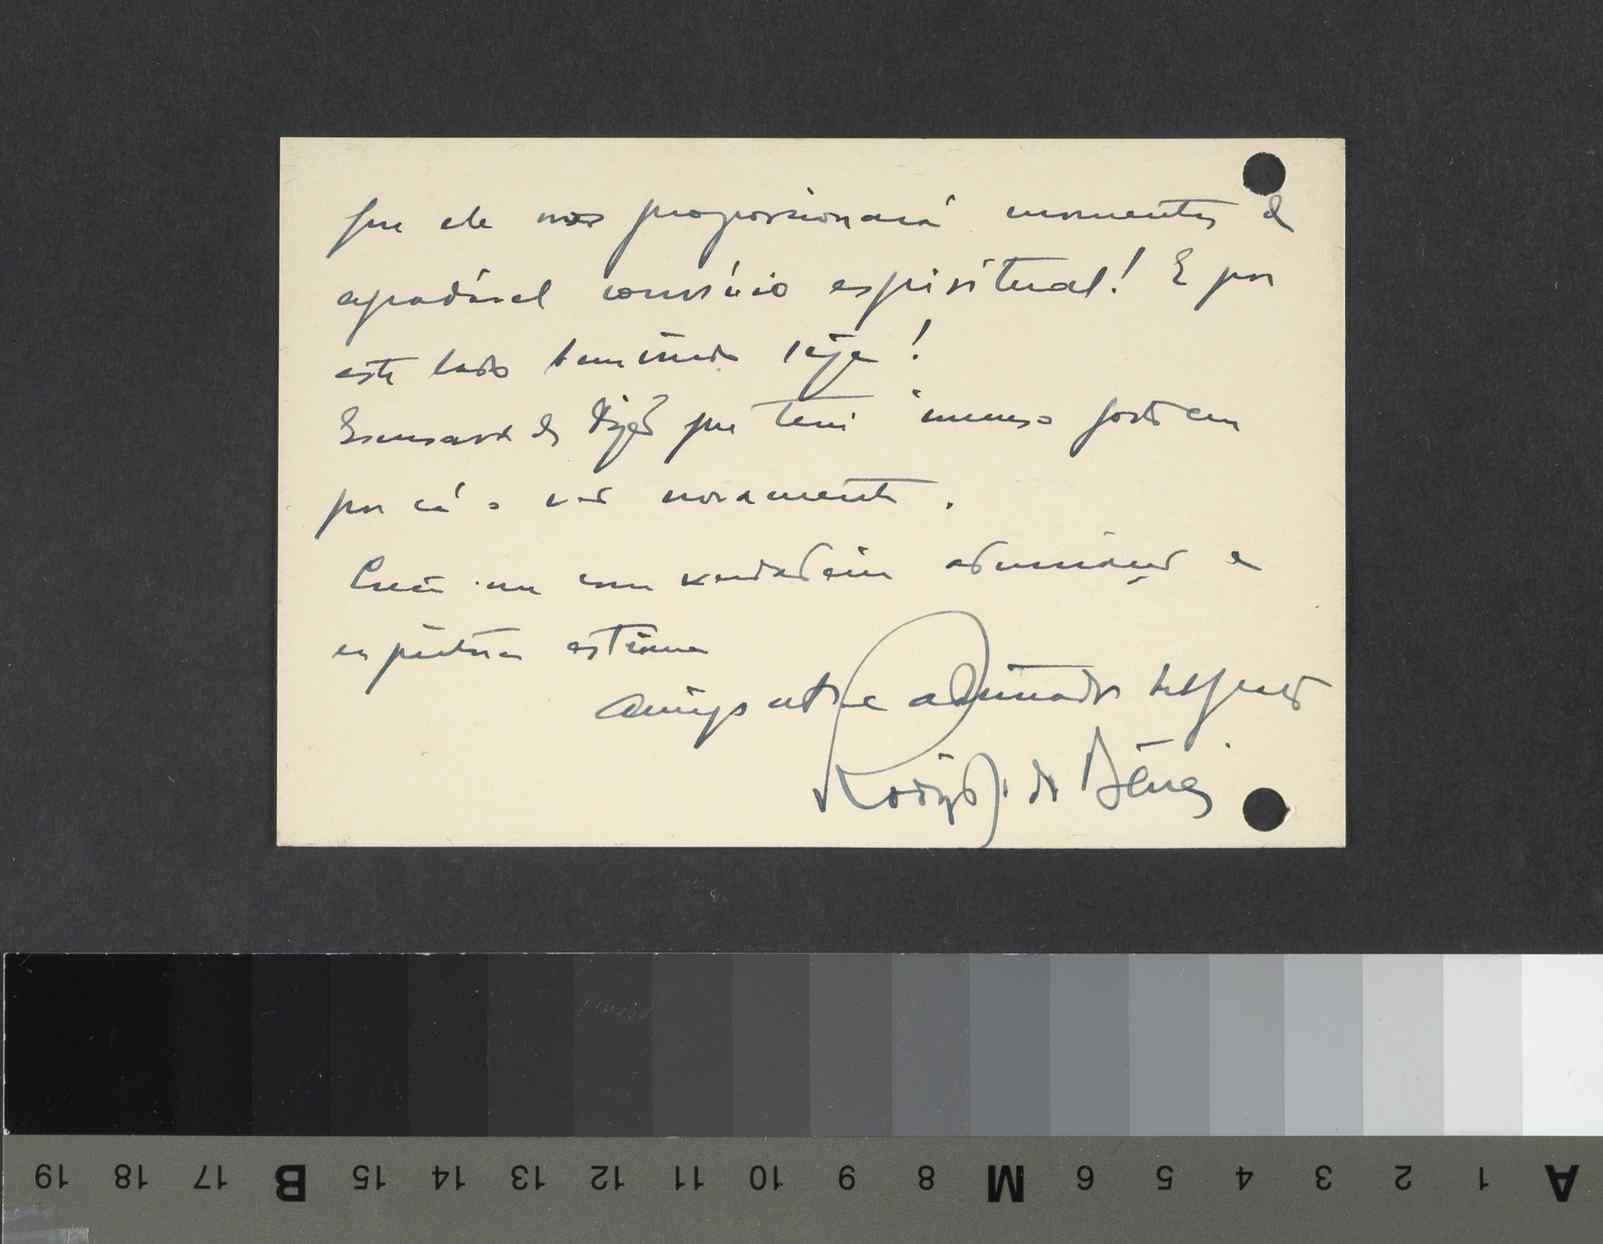 que ele nos proporcionará momentos de
agradável convívio espiritual! E por
este lado bem vinda seja!
Escusado de dizer que terei imenso gosto em
por cá o ver novamente.
Creia-me com verdadeira admiração e
estima
Amigo admirador
Rodrigo de
19 18 17 B 15 14 13 12 11 10 9 8 M 6 5 4 3 2 1 A